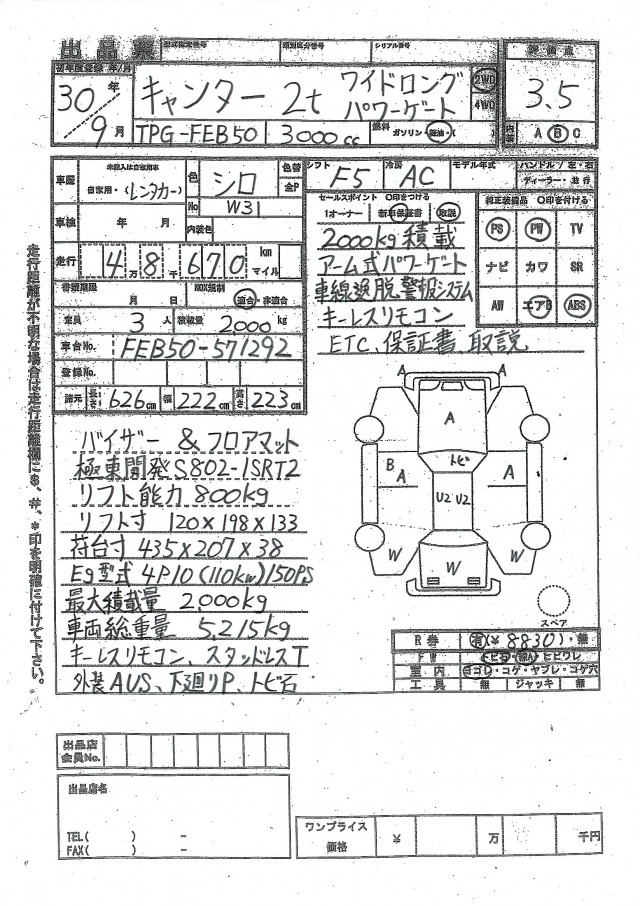 出品票 型式指定番号 類別区分番号 シリアル番号 評価点
初年度登録 年/月
30年 9月 キャンター 2t ワイドロング パワーゲート 2WD 4WD 3.5
TPG-FEB50 3000cc 燃料 ガソリン・軽油・( ) 内装 A B C
車歴 未記入は自家用車 自家用・(レンタカー) 色 シロ 色替 全P
No W31
車検 年 月 内装色
走行 4万8千670 km マイル
書類期限 月 日 NOX規制 適合・非適合
定員 3人 積載量 2000kg
車台No. FEB50-571292
登録No.
諸元 長さ 626cm 幅 222cm 高さ 223cm
シフト F5 冷房 AC モデル年式 ハンドル/左・右
ディーラー/並行
セールスポイント ○印をつける
1オーナー 新車保証書 取説
2000kg積載
アーム式パワーゲート
車線逸脱警報システム
キーレスリモコン
ETC、保証書、取説
純正装備品 ○印を付ける
PS PW TV
ナビ カワ SR
AW エアB ABS
バイザー & フロアマット
極東開発S802-1SRT2
リフト能力 800kg
リフト寸 120×198×133
荷台寸 435×207×38
Eg型式 4P10 (110kw)150PS
最大積載量 2,000kg
車両総重量 5,215kg
キーレスリモコン、スタッドレスT
外装AUS、下廻りP、トビ石
A A
A
B A トビ A
U2 U2
W W W
スペア
R券 有(¥8830)・無
FW トビ石・線A・ヒビワレ
室内 ヨゴレ・コゲ・ヤブレ・コゲ穴
工具 無 ジャッキ 無
走行距離が不明な場合は走行距離欄に$、#、*印を明確に付けて下さい。
出品店会員No.
出品店名
TEL( ) -
FAX( ) -
ワンプライス価格 ¥ 万 千円